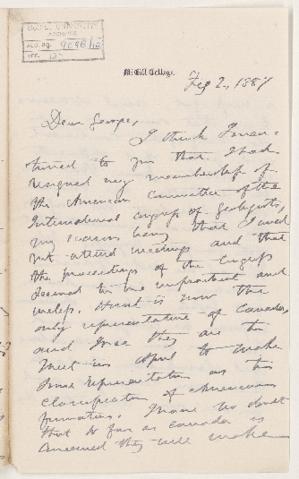 McGill College.
Feb 2, 1887
Dear George,
I think I men-
tioned to you that I had
resigned my membership of
the American Committee of the
International Congress of Geologists,
my reasons being that I could
not attend meetings and that
the proceedings of the Congress
seemed to me unpractical and
useless. Hunt is now the
only representative of Canada,
and I see they are to
meet in April to make
some representation as to
classification of American
formations. I have no doubt
that so far as Canada is
concerned they will make